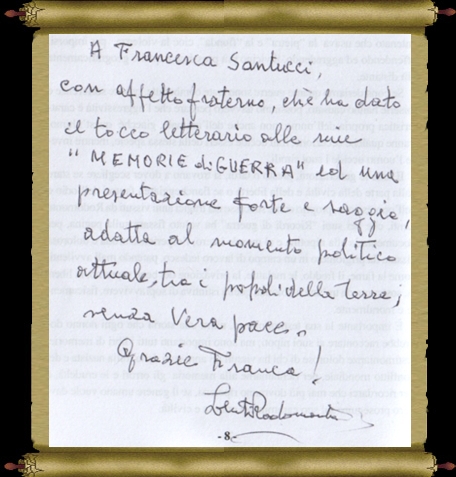 A Francesca Santucci,
con affetto fraterno, chè ha dato
il tocco letterario alle mie
"MEMORIE di GUERRA" ed una
presentazione forte e saggia,
adatta al momento politico
attuale, tra i popoli della Terra,
senza Vera pace.
Grazie Franca!
-8-